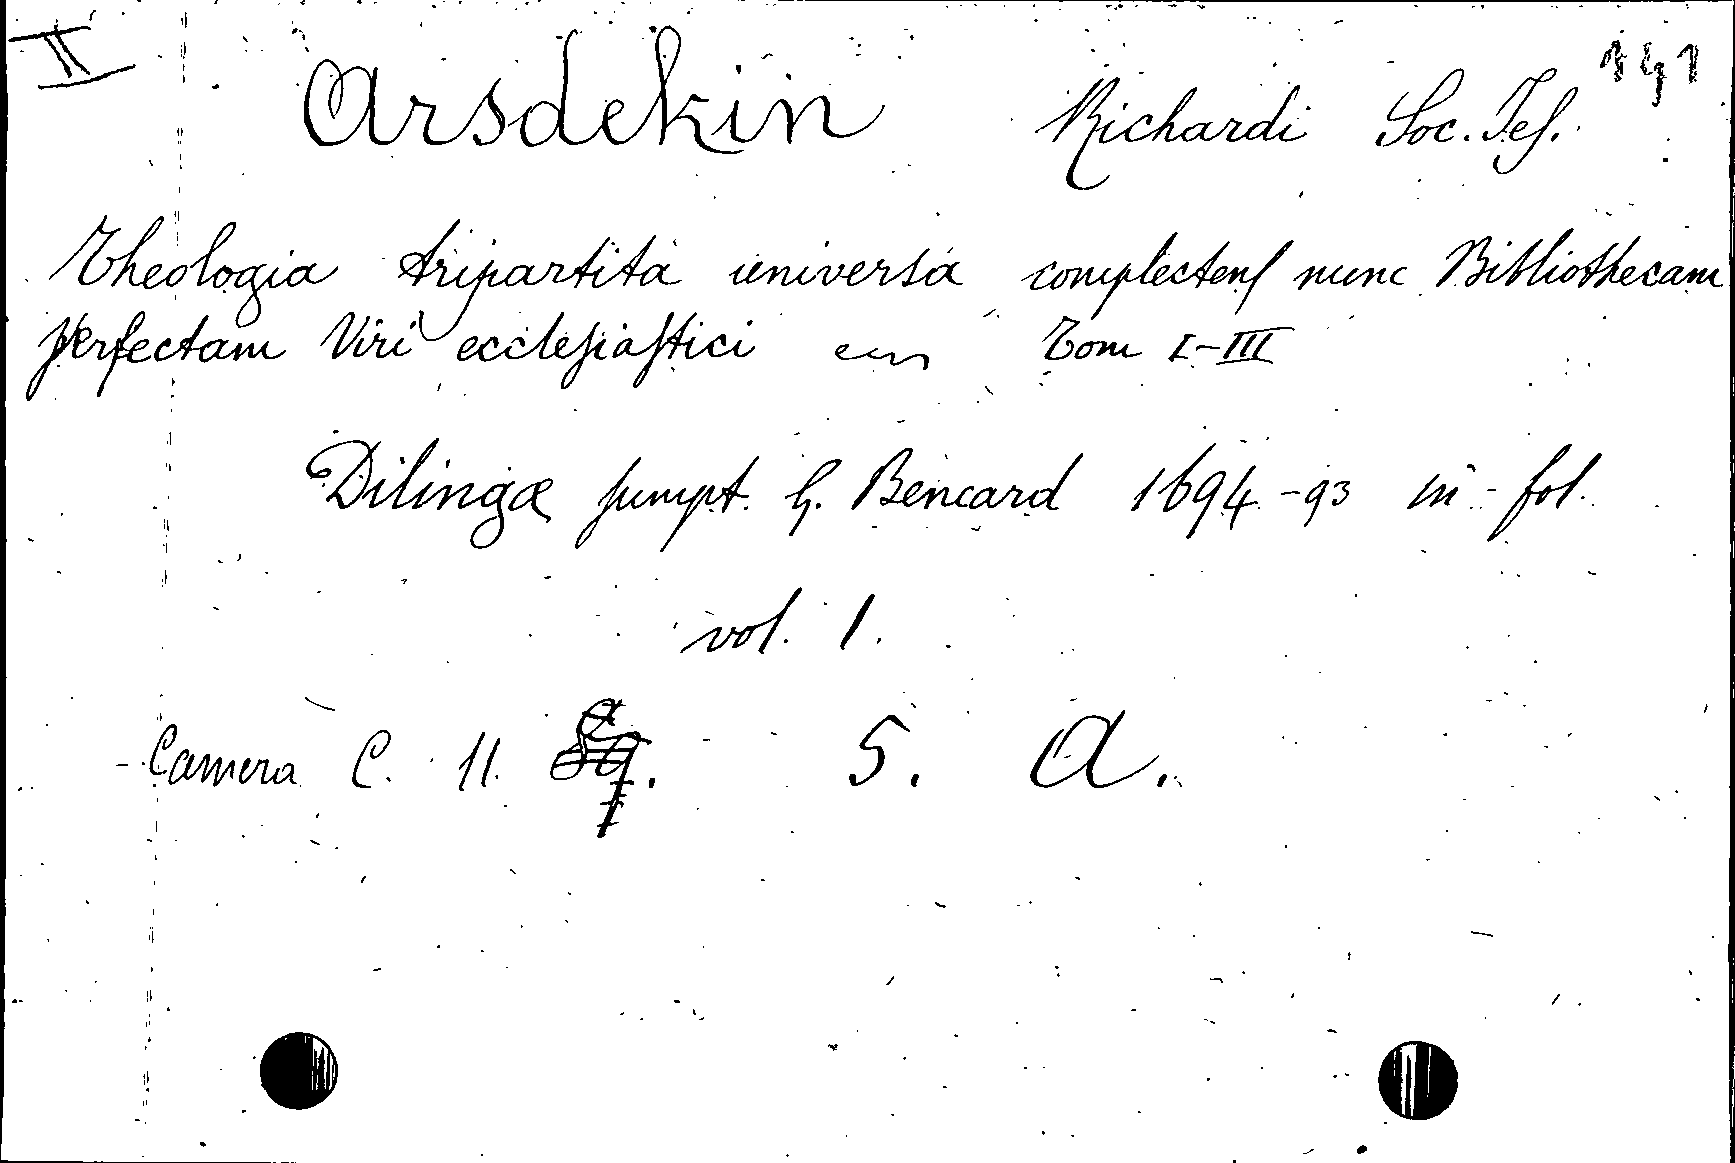 II
141
Arsdekin Richardi Soc. Jeſ.
Theologia tripartita universa complectenſ nunc Bibliothecam
perfectam Viri eccleſiaſtici Tom I-III
Dilingæ ſumpt. G. Bencard 1694-93 in-fol.
vol. 1.
Camera C. 11. 5. A.